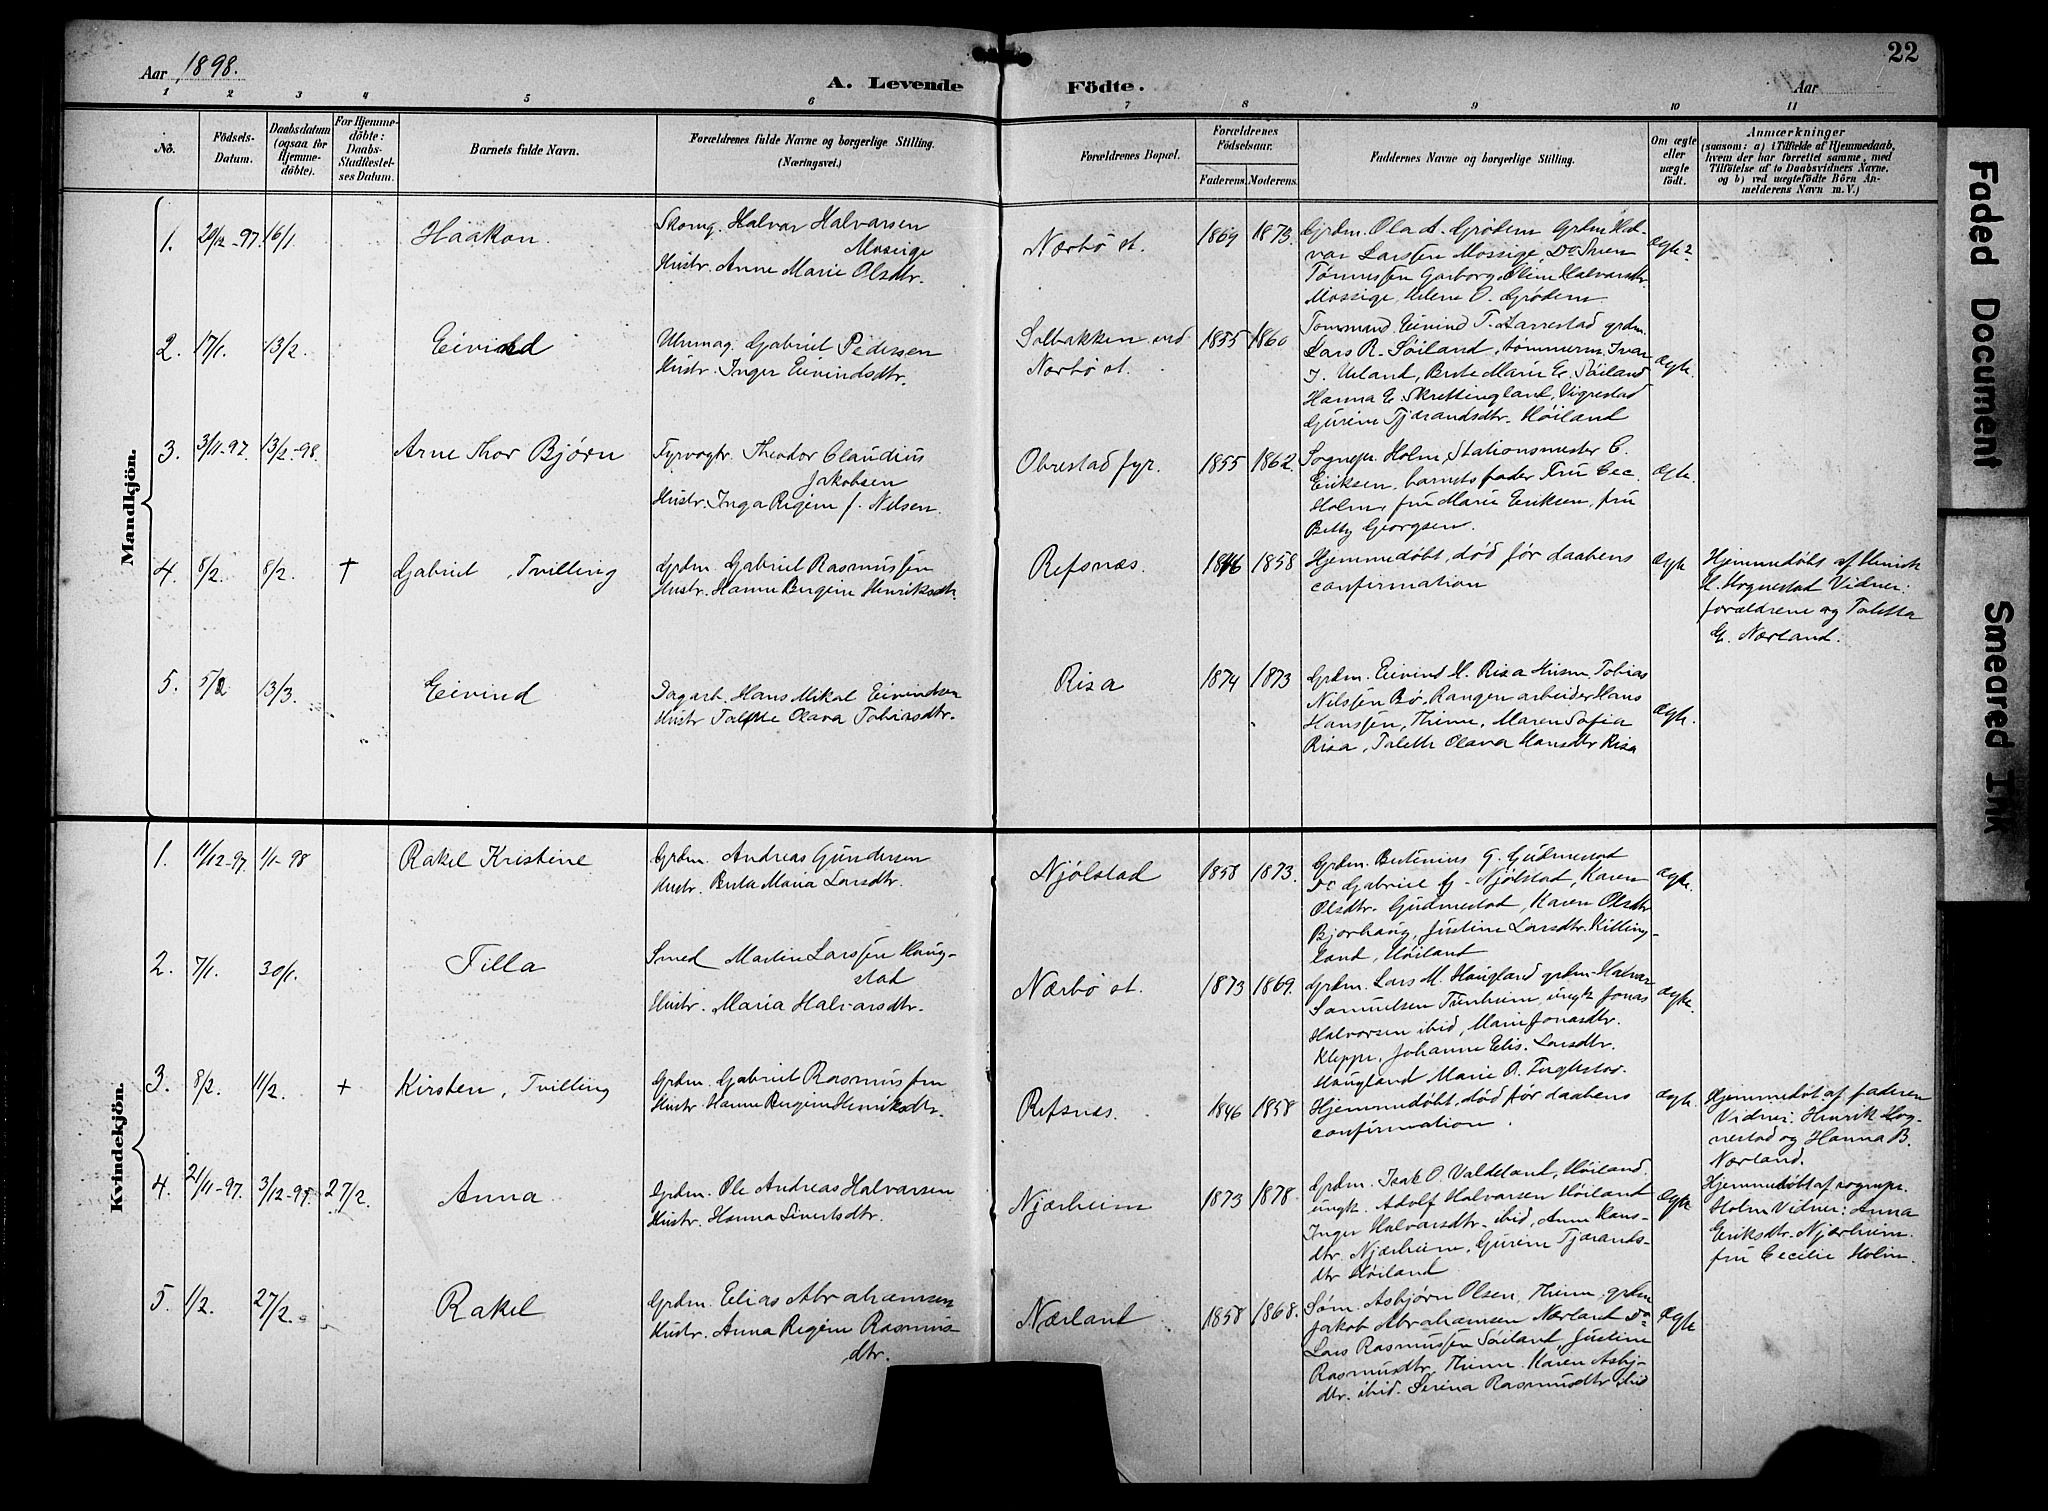 22
Aar 1898.
A. Levende Födte.
Aar
1 2 3 4 5 6 7 8 9 10 11
No.
Födsels-Datum.
Daabsdatum (ogsaa for Hjemmedöbte).
For Hjemmedöbte: Daabs-Stadfæstelses Datum.
Barnets fulde Navn.
Forældrenes fulde Navne og borgerlige Stilling. (Næringsvei.)
Forældrenes Bopæl.
Forældrenes Födselsaar.
Faderens. Moderens.
Faddernes Navne og borgerlige Stilling.
Om ægte eller uægte födt.
Anmærkninger
(saasom: a) i Tilfælde af Hjemmedaab, hvem der har forrettet samme, med Tilföielse af to Daabsvidners Navne. og b) ved uægtefödte Börn Anmelderens Navn m. V.)
Mandkjön.
1. 20/12-97. 16/1 Haakon.
Skomg. Halvar Halvarsen
Mossige
Hustr. Anne Marie Olsdtr.
Nærbø st. 1869 1873.
Grdm. Ola A. Grødem Grdm Hal-
var Larssen Mossige Do Sven
Tønnessen Garborg, Eline Halvarsdtr.
Mossige, Helene O. Grødem
Ægte
2. 17/1. 13/2. Eivind
Uhrmag. Gabriel Pedersen
Hustr. Inger Eivindsdtr.
Solbakken ved
Nærbø st. 1855 1860
Eivind T. Harrestad grdm.
Lars R. Søiland, tømmerm. Ivar
I. Ueland, Berte Marie E. Søiland
Hanna E. Skrettingland, Vigrestad
Gurine Tjærandsdtr. Høiland
Ægte.
3. 3/11-97. 13/2-98. Arne Thor Bjørn
Fyrvogtr. Theodor Claudius
Jakobsen
Hustr. Inga Regine f. Nilsen.
Obrestad fyr. 1855 1862.
Sognepr. Holm, Stationsmester C.
Eriksen. barnets fader Fru Cec.
Holm, fru Marie Eriksen, fru
Betty Georgsen.
Ægte.
4. 8/2. 8/2. † Gabriel, Tvilling
Grdm. Gabriel Rasmussen
Hustr. Hanne Bergine Henriksdtr.
Refsnæs. 1846 1858
Hjemmedøbt, død før daabens
confirmation
Ægte
Hjemmedøbt af Henrik
H. Hognestad Vidner:
forældrene og Taletta
E. Nærland.
5. 5/2 13/3. Eivind
Dagarb. Hans Mikal Eivindsen
Hustr Talette Olava Tobiasdtr.
Risa 1874 1873
Grdm. Eivind H. Risa Husm. Tobias
Nilssen Bø, Rangerarbeider Hans
Hanssen, Thime, Maren Sofia
Risa, Talette Olava Hansdtr Risa
Ægte.
Kvindekjön.
1. 11/12-97. 1/1-98 Rakel Kristine
Grdm. Andreas Gundersen
Hustr. Berta Maria Larsdtr.
Njølstad 1858 1873.
Grdm. Bertinius G. Gudmestad
Do Gabriel G. Njølstad, Karen
Olsdtr. Gudmestad, Karen Olsdtr
Bjorhaug, Justine Larsdtr. Kitling-
land, Høiland
ægte.
2. 7/1. 30/1. Tilla
Smed Martin Larssen Haug-
stad
Hustr. Maria Halvarsdtr.
Nærbø st. 1873 1869.
Grdm. Lars M. Haugland grdm. Halvar
Samuelsen Tunheim, ungk Jonas
Halvorsen ibid, Marie Jonasdtr.
Kleppe, Johanne Elis. Larsdtr.
Haugland Marie O.
ægte.
3. 8/2. 11/2. † Kirsten, Tvilling
Grdm. Gabriel Rasmussen
Hustr Hanne Bergine Henriksdtr.
Refsnæs. 1846 1858
Hjemmedøbt, død før daabens
confirmation.
ægte.
Hjemmedøbt af faderen
Vidner: Henrik Hog-
nestad og Hanna B.
Nærland.
4. 21/11-97. 3/12-97 27/2. Anna
Grdm. Ole Andreas Halvarsen
Hustr. Hanna Sivertsdtr.
Njærheim 1873 1878.
Grdm. Isak O. Valdeland, Høiland.
ungk. Adolf Halvarsen Høiland
Inger Halvarsdtr. ibid, Anne Hans-
dtr. Njærheim, Gurine Tjærands-
dtr Høiland
Ægte
Hjemmedøbt af sognepr.
Holm Vidner: Anna
Eriksdtr. Njærheim.
fru Cecilie Holm.
5. 1/2. 27/2. Rakel
Grdm. Elias Abrahamsen
Hustr. Anna Regine Rasmus-
dtr.
Nærland 1858 1868.
Asbjørn Olsen, Thime, grdm
Jakob Abrahamsen Nærland Do
Lars Rasmussen Søiland, Justine
Rasmusdtr, Thime. Karen Asbj-
dtr. ibid. Serina Rasmusdtr ibid
Ægte
Faded Document
Smeared Ink